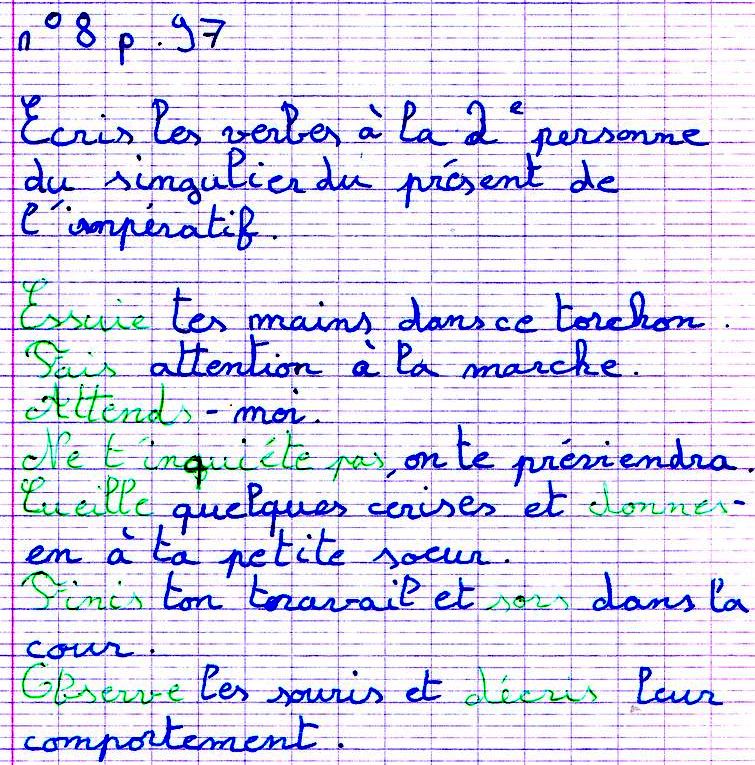 n° 8 p. 97
Ecris les verbes à la 2e personne
du singulier du présent de
l'impératif.
Essuie tes mains dans ce torchon.
Fais attention à la marche.
Attends-moi.
Ne t'inquiéte pas, on te préviendra.
Cueille quelques cerises et donnes-
en à ta petite soeur.
Finis ton travail et sors dans la
cour.
Observe les souris et décris leur
comportement.